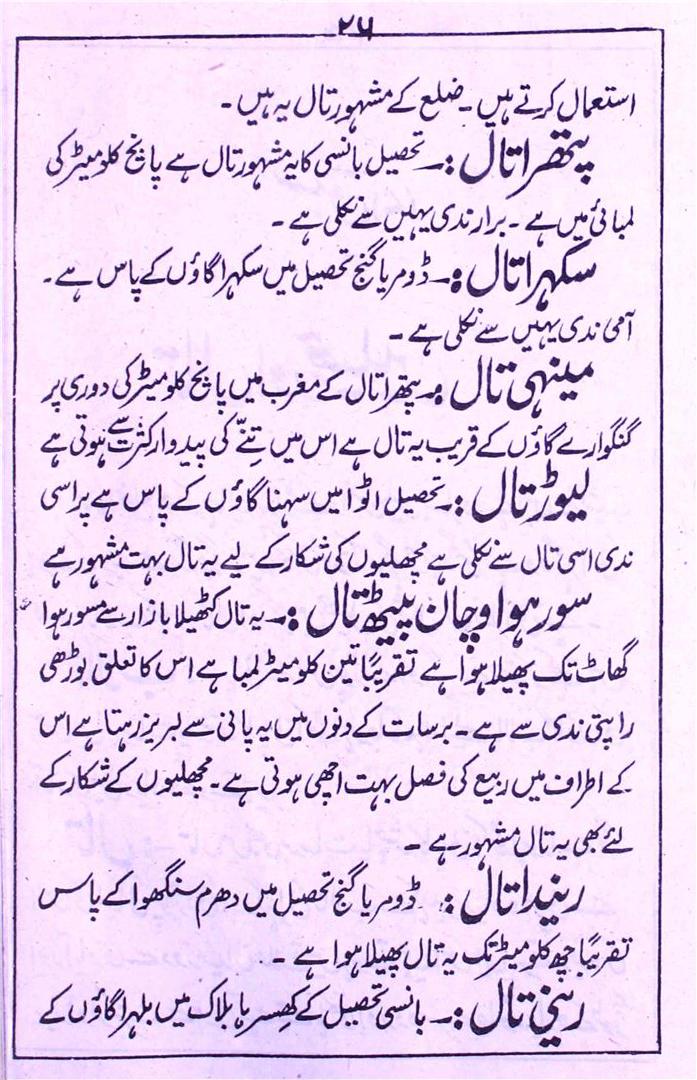 ۲۶
استعمال کرتے ہیں۔ ضلع کے مشہور تال یہ ہیں۔
پتھرا تال :۔ تحصیل بانسی کا یہ مشہور تال ہے پانچ کلومیٹر کی
لمبائی میں ہے۔ برار ندی یہیں سے نکلی ہے۔
سکہرا تال :۔ ڈومریا گنج تحصیل میں سکہرا گاؤں کے پاس ہے۔
آمی ندی یہیں سے نکلی ہے۔
مینہی تال :۔ پتھرا تال کے مغرب میں پانچ کلومیٹر کی دوری پر
گنگوارے گاؤں کے قریب یہ تال ہے اس میں تِنّے کی پیدوار کثرت سے ہوتی ہے
لیوڑ تال :۔ تحصیل اٹوا میں سہنا گاؤں کے پاس ہے پراسی
ندی اسی تال سے نکلی ہے مچھلیوں کی شکار کے لیے یہ تال بہت مشہور ہے
سورہوا وچان پیٹھ تال :۔ یہ تال کٹھیلا بازار سے سورہوا
گھاٹ تک پھیلا ہوا ہے تقریباً تین کلومیٹر لمبا ہے اس کا تعلق بوڑھی
راپتی ندی سے ہے۔ برسات کے دنوں میں یہ پانی سے لبریز رہتا ہے اس
کے اطراف میں ربیع کی فصل بہت اچھی ہوتی ہے۔ مچھلیوں کے شکار کے
لئے بھی یہ تال مشہور ہے۔
رینڈا تال :۔ ڈومریا گنج تحصیل میں دھرم سنگھوا کے پاس
تقریباً چھ کلومیٹر تک یہ تال پھیلا ہوا ہے۔
رینی تال :۔ بانسی تحصیل کے کھِسرہا بلاک میں بلہرا گاؤں کے